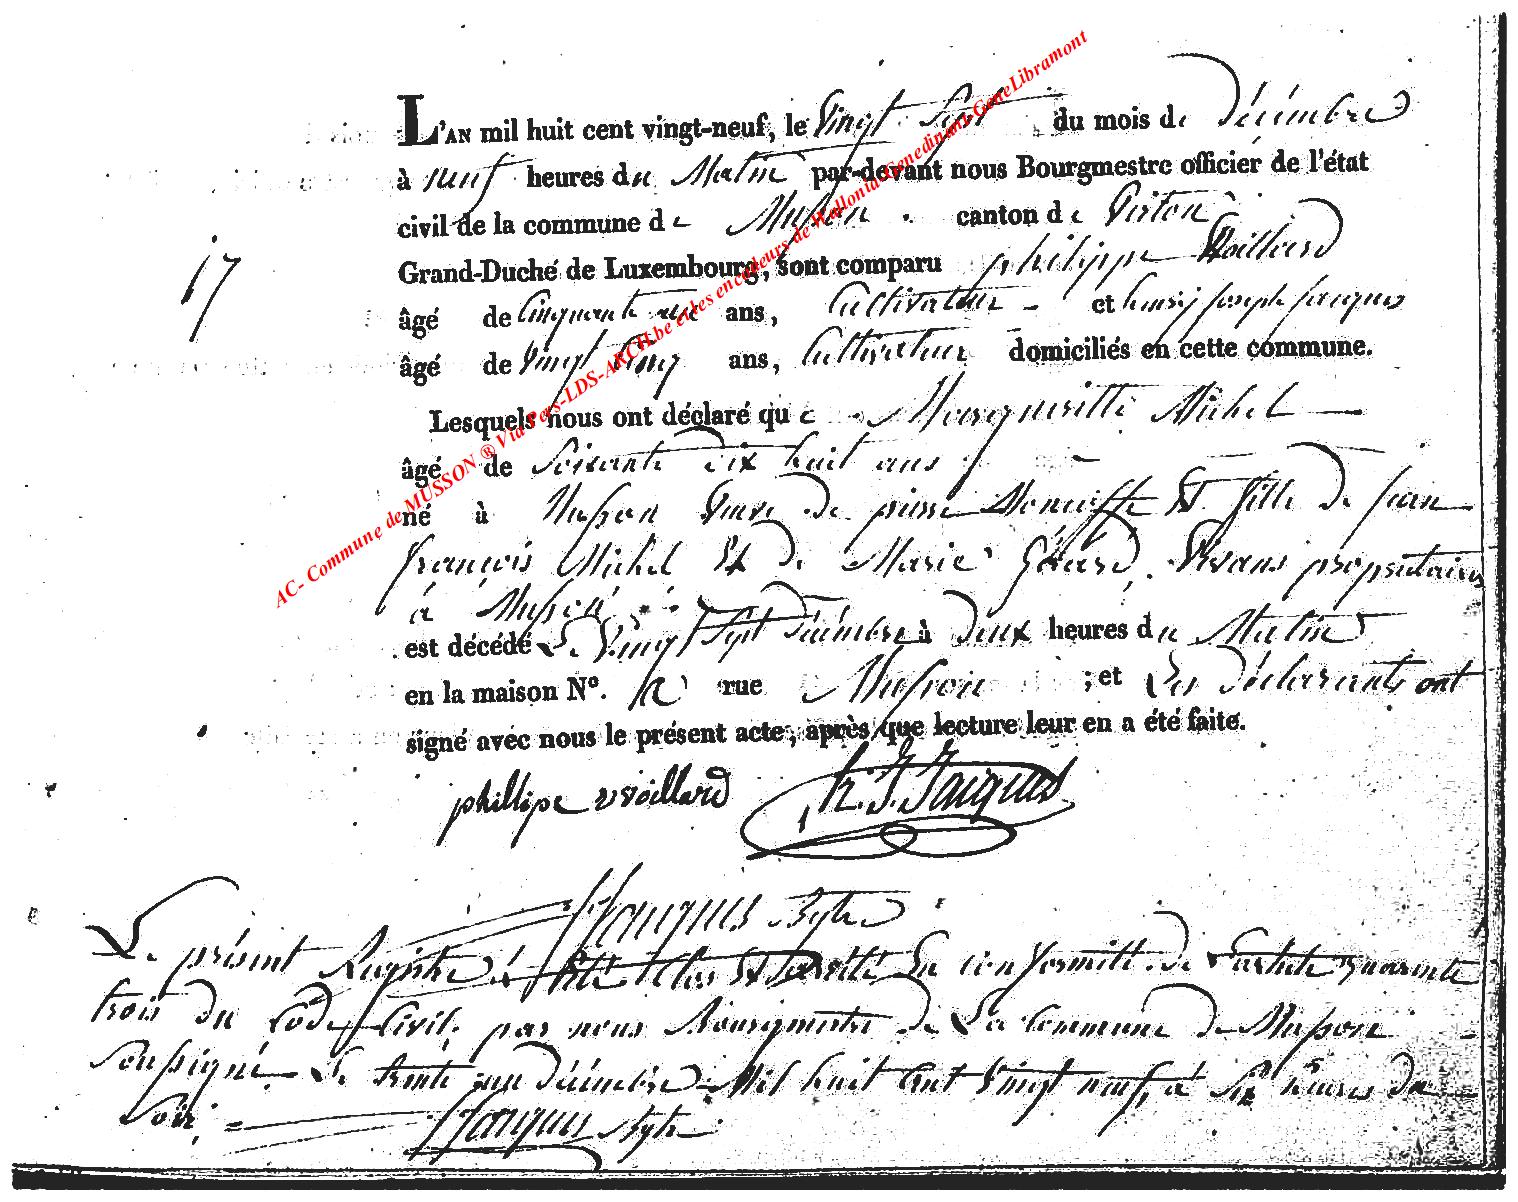 L'AN mil huit cent vingt-neuf, le Vingt Sept du mois de décembre
à neuf heures du Matin par-devant nous Bourgmestre officier de l'état
civil de la commune de Musson canton de Virton
17
Grand-Duché de Luxembourg, sont comparu philippe Voillard
âgé de Cinquante ans, Cultivateur - et henry joseph jacques
âgé de Vingt Cinq ans, Cultivateur domiciliés en cette commune.
Lesquels nous ont déclaré que Margueritte Michel
âgé de Soixante dix huit ans
né à Musson Veuve de pierre Et fille de jean
françois Michel Et de Marie Gérard. Vivans propriétaires
à Musson
est décédé Le Vingt Sept décembre à deux heures du Matin
en la maison N°. rue Musson ; et Les déclarants ont
signé avec nous le présent acte, après que lecture leur en a été faite.
phillipe vvoillard h. J. Jacques
Jacques
Le présent Registre à Eté Clos Et Arrêté En conformité de L'article quarante
trois du Code Civil. par nous Bourgmestre de La Commune de Musson
Soussigné Le trente un décembre Mil huit Cent Vingt neuf, à Six heures du
Soir,
Jacques
AC- Commune de MUSSON ® Via Pers-LDS-ARCH.be et les encodeurs de Wallonia-Genedinant-GeneLibramont